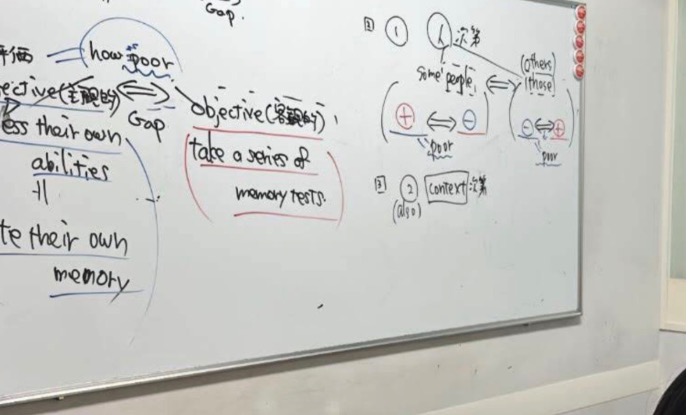 Gap.
評価 how poor
ective(主観的) ⇔ objective(客観的)
Gap
ess their own
abilities
||
te their own
memory
take a series of
memory tests.
① 人 次第
some people, ⇔ (others
those)
(⊕ ⇔ ⊖) (⊖ ⇔ ⊕)
poor poor
② context 次第
(also)